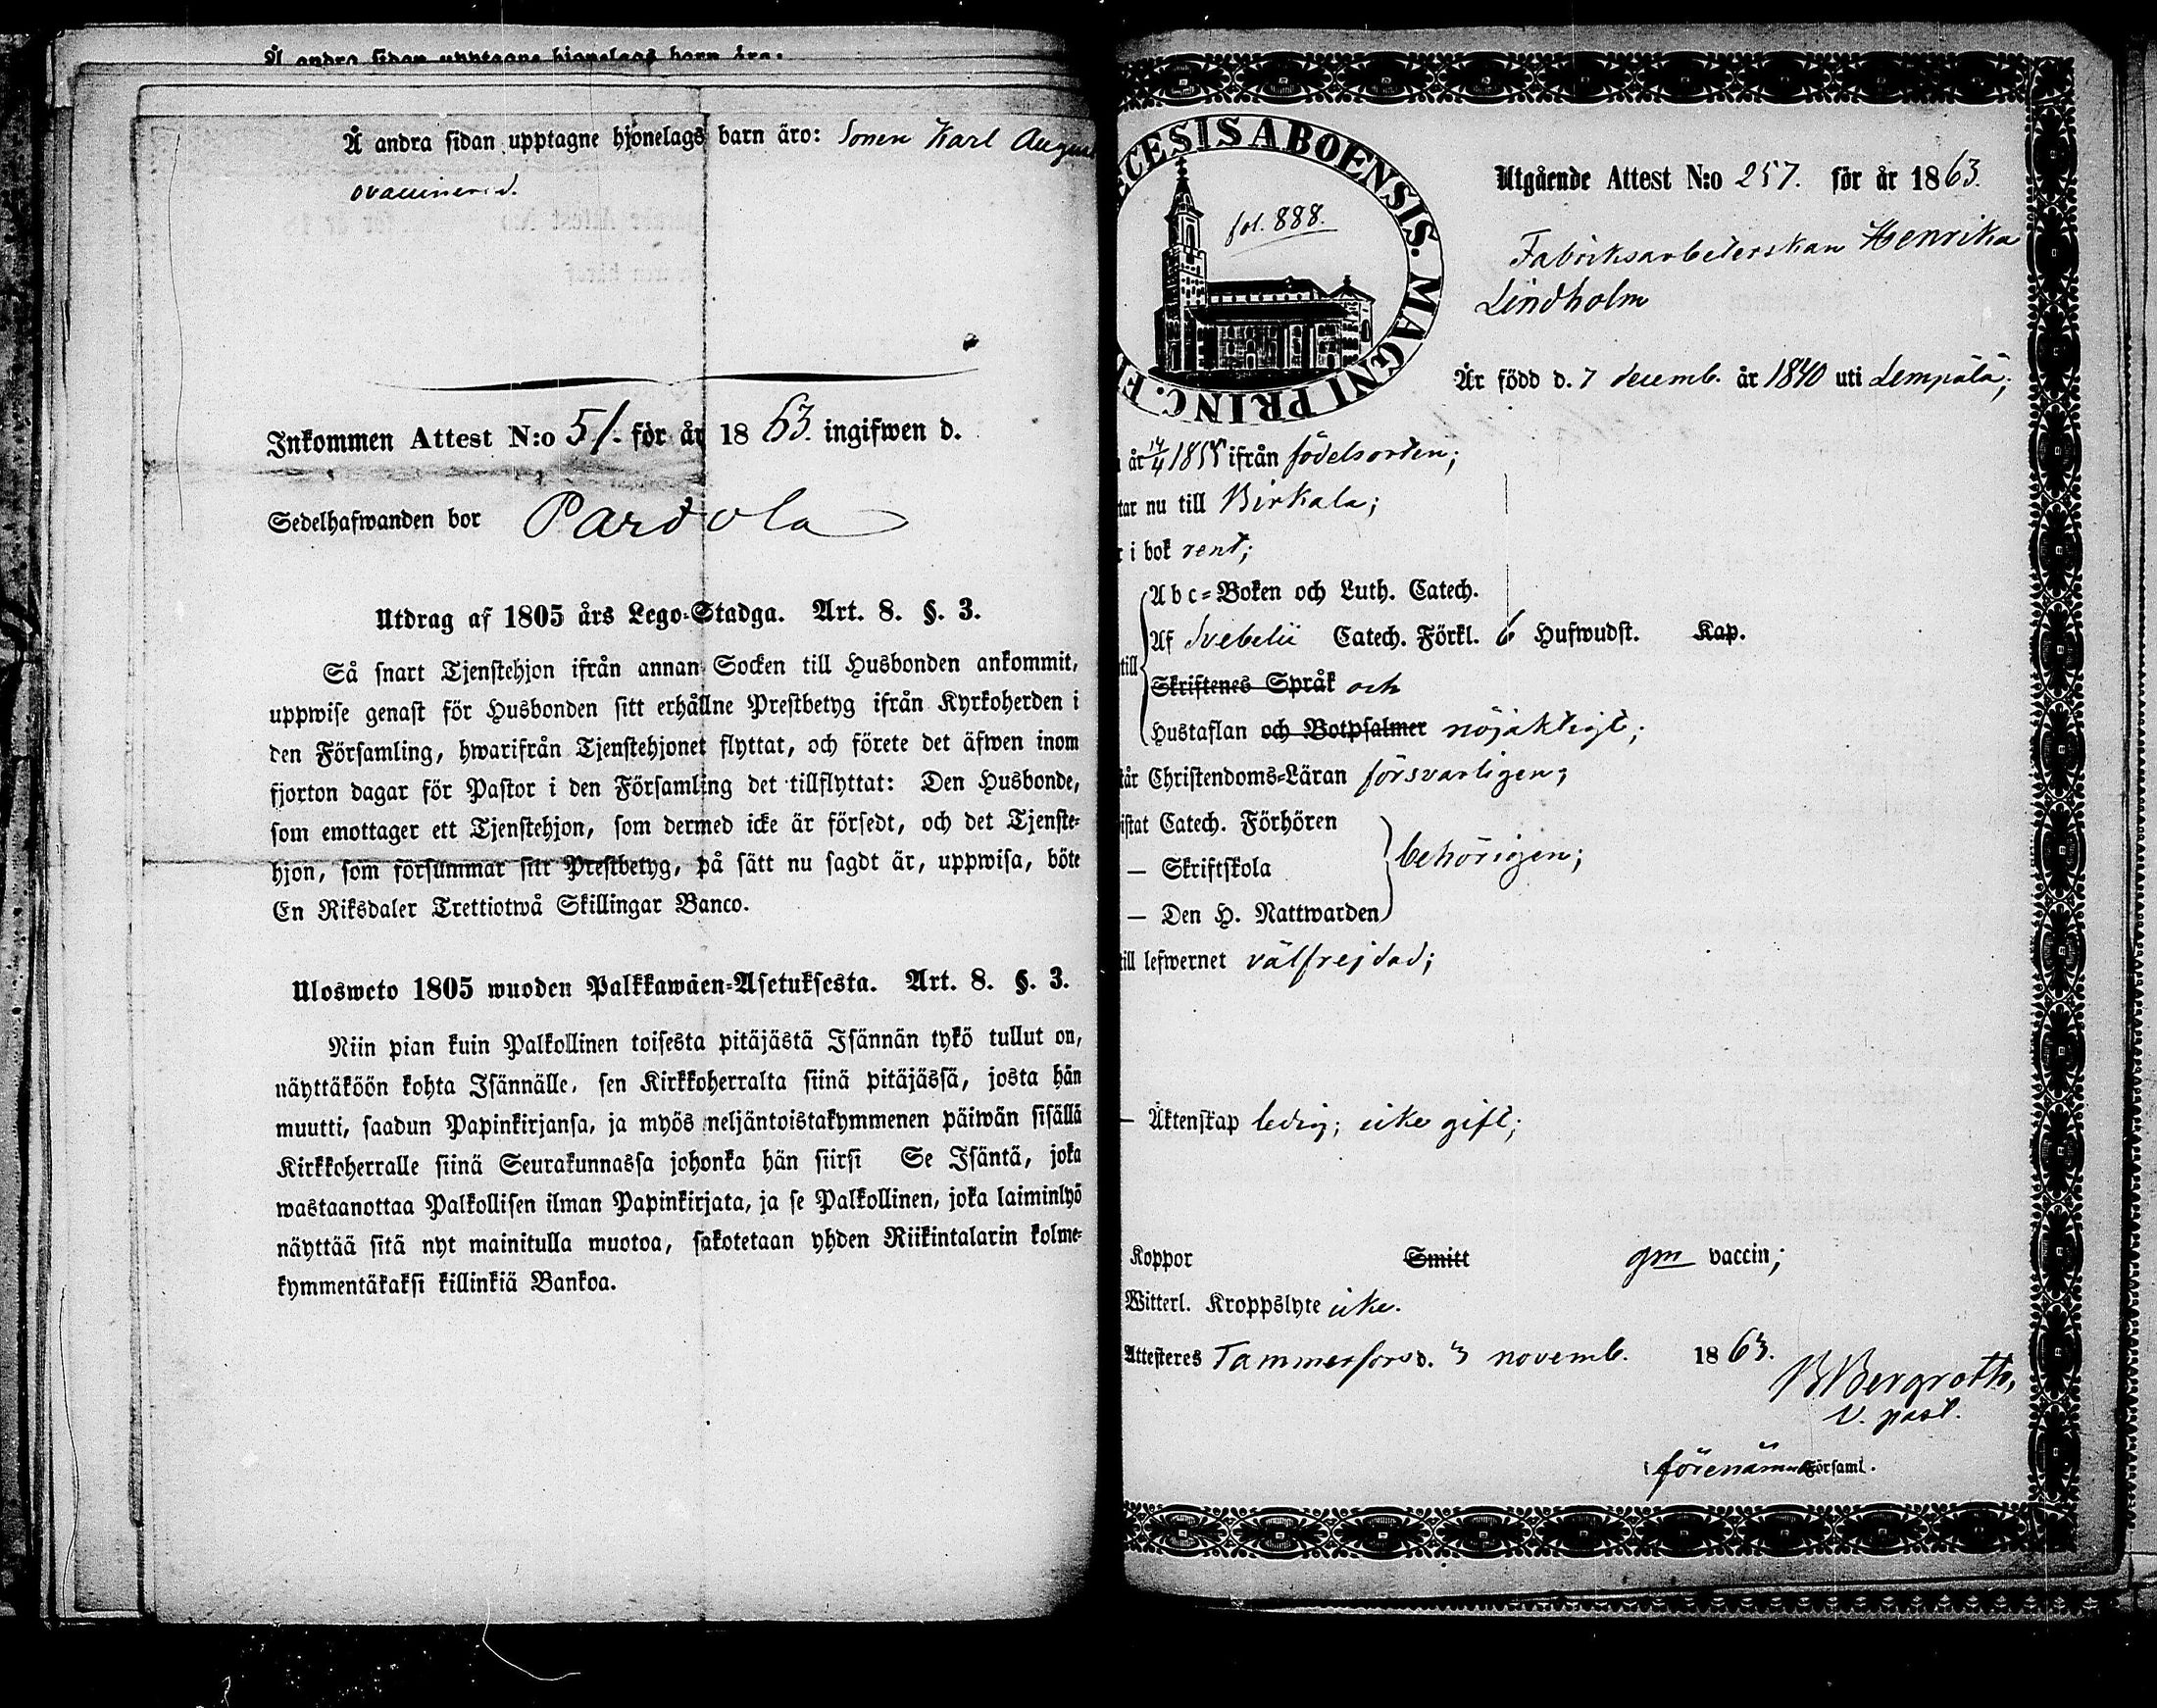 Å andra sidan upptagne hjonelags barn äro:
Å andra sidan upptagne hjonelags barn äro: Sonen Karl August
ovaccinerad.
Inkommen Attest N:o 51. för år 1863. ingifwen d.
Sedelhafwanden bor Pardola
Utdrag af 1805 års Lego-Stadga. Art. 8. §. 3.
Så snart Tjenstehjon ifrån annan Socken till Husbonden ankommit,
uppwise genast för Husbonden sitt erhållne Prestbetyg ifrån Kyrkoherden i
den Församling, hwarifrån Tjenstehjonet flyttat, och förete det äfwen inom
fjorton dagar för Pastor i den Församling det tillflyttat: Den Husbonde,
som emottager ett Tjenstehjon, som dermed icke är försedt, och det Tjenste-
hjon, som försummar sitt Prestbetyg, på sätt nu sagdt är, uppwisa, böte
En Riksdaler Trettiotwå Skillingar Banco.
Ulosweto 1805 wuoden Palkkawäen-Asetuksesta. Art. 8. §. 3.
Niin pian kuin Palkollinen toisesta pitäjästä Isännän tykö tullut on,
näyttäköön kohta Isännälle, sen Kirkkoherralta siinä pitäjässä, josta hän
muutti, saadun Papinkirjansa, ja myös neljäntoistakymmenen päiwän sisällä
Kirkkoherralle siinä Seurakunnassa johonka hän siirsi Se Isäntä, joka
wastaanottaa Palkollisen ilman Papinkirjata, ja se Palkollinen, joka laiminlyö
näyttää sitä nyt mainitulla muotoa, sakotetaan yhden Riikintalarin kolme-
kymmentäkaksi killinkiä Bankoa.
ECESIS ABOENSIS. MAGNI PRINC. FI
fol. 888.
Utgående Attest N:o 257. för år 1863.
Fabriksarbeterskan Henrika
Lindholm
Är född d. 7 decemb. år 1840 uti Lempälä;
år 14/4 1855 ifrån födelsorten;
tar nu till Birkala;
r i bok rent;
Abc-Boken och Luth. Catech.
till
Af Svebelii Catech. Förkl. 6 Hufwudst. Kap.
Skriftenes Språk och
Hustaflan och Botpsalmer nöjaktigt;
tår Christendoms-Läran försvarligen;
istat Catech. Förhören
— Skriftskola behörigen;
— Den H. Nattwarden
till lefwernet välfrejdad;
— Äktenskap ledig; icke gift;
Koppor Smitt gm vaccin;
Witterl. Kroppslyte icke.
Attesteres Tammerfors d. 3 novemb. 1863.
B Bergroth,
v. past.
i förenämnda Församl.